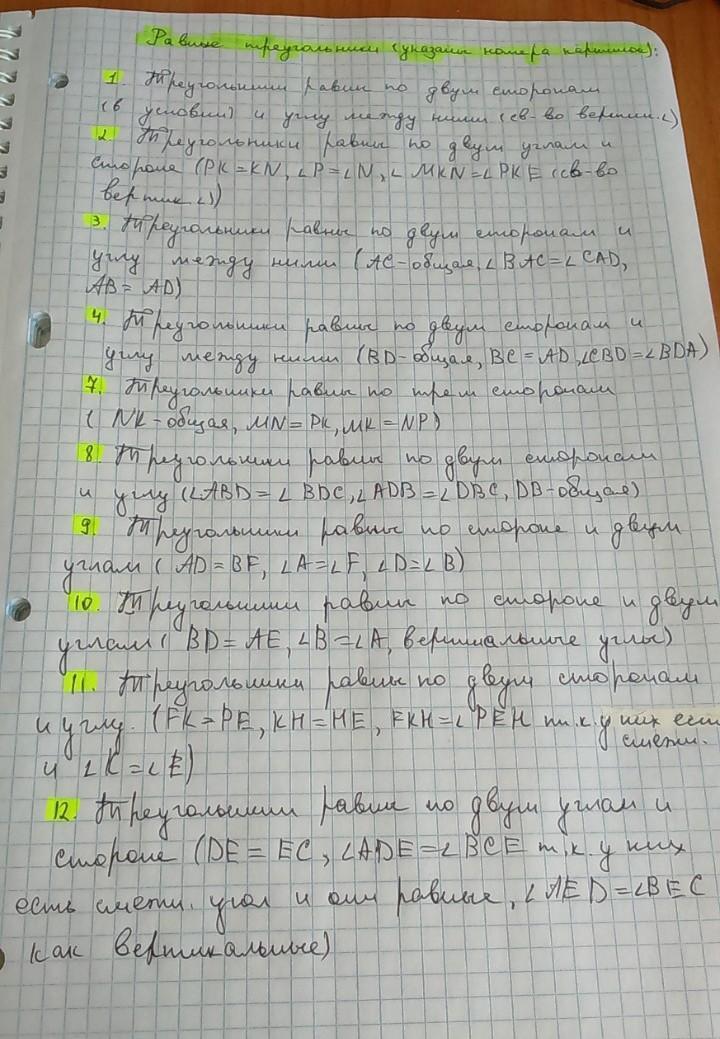 Равные треугольники (указаны номера картинок):
1. Треугольники равны по двум сторонам
(в условии) и углу между ними (св-во вертик. ∠)
2. Треугольники равны по двум углам и
стороне (PK = KN, ∠P = ∠N, ∠ MKN = ∠PKE (св-во
вертик ∠))
3. Треугольники равны по двум сторонам и
углу между ними (AC - общая, ∠ BAC = ∠ CAD,
AB = AD)
4. Треугольники равны по двум сторонам и
углу между ними (BD - общая, BC = AD, ∠CBD = ∠BDA)
7. Треугольники равны по трем сторонам
( NK - общая, MN = PK, MK = NP)
8. Треугольники равны по двум сторонам
и углу (∠ABD = ∠ BDC, ∠ADB = ∠DBC, DB - общая)
9. Треугольники равны по стороне и двум
углам ( AD = BF, ∠A = ∠F, ∠D = ∠B)
10. Треугольники равны по стороне и двум
углам ( BD = AE, ∠B = ∠A, вертикальные углы)
11. Треугольники равны по двум сторонам
и углу. (FK = PE, KH = HE, FKH = ∠ PEH т.к. у них есть
смежн.
и ∠K = ∠E)
12. Треугольники равны по двум углам и
стороне (DE = EC, ∠ADE = ∠BCE т.к. у них
есть смежн. угол и они равные, ∠AED = ∠BEC
как вертикальные)